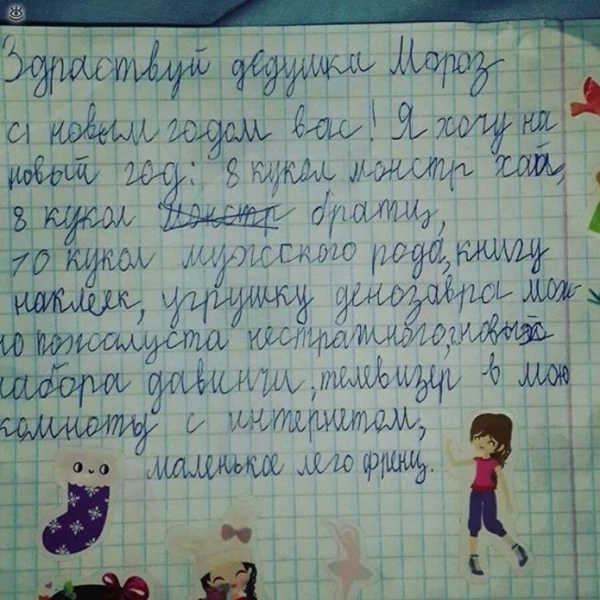 Здраствуй дедушка Мороз
с новым годом вас! Я хочу на
новый год: 8 кукол монстр хай,
8 кукол монстр братц,
10 кукол мужсского рода, книгу
наклеек, угрушку денозавра мож-
но пожалуста нестражного,
набора давинчи, телевизер в мою
комноты с интернетом,
маленькое лего френц.